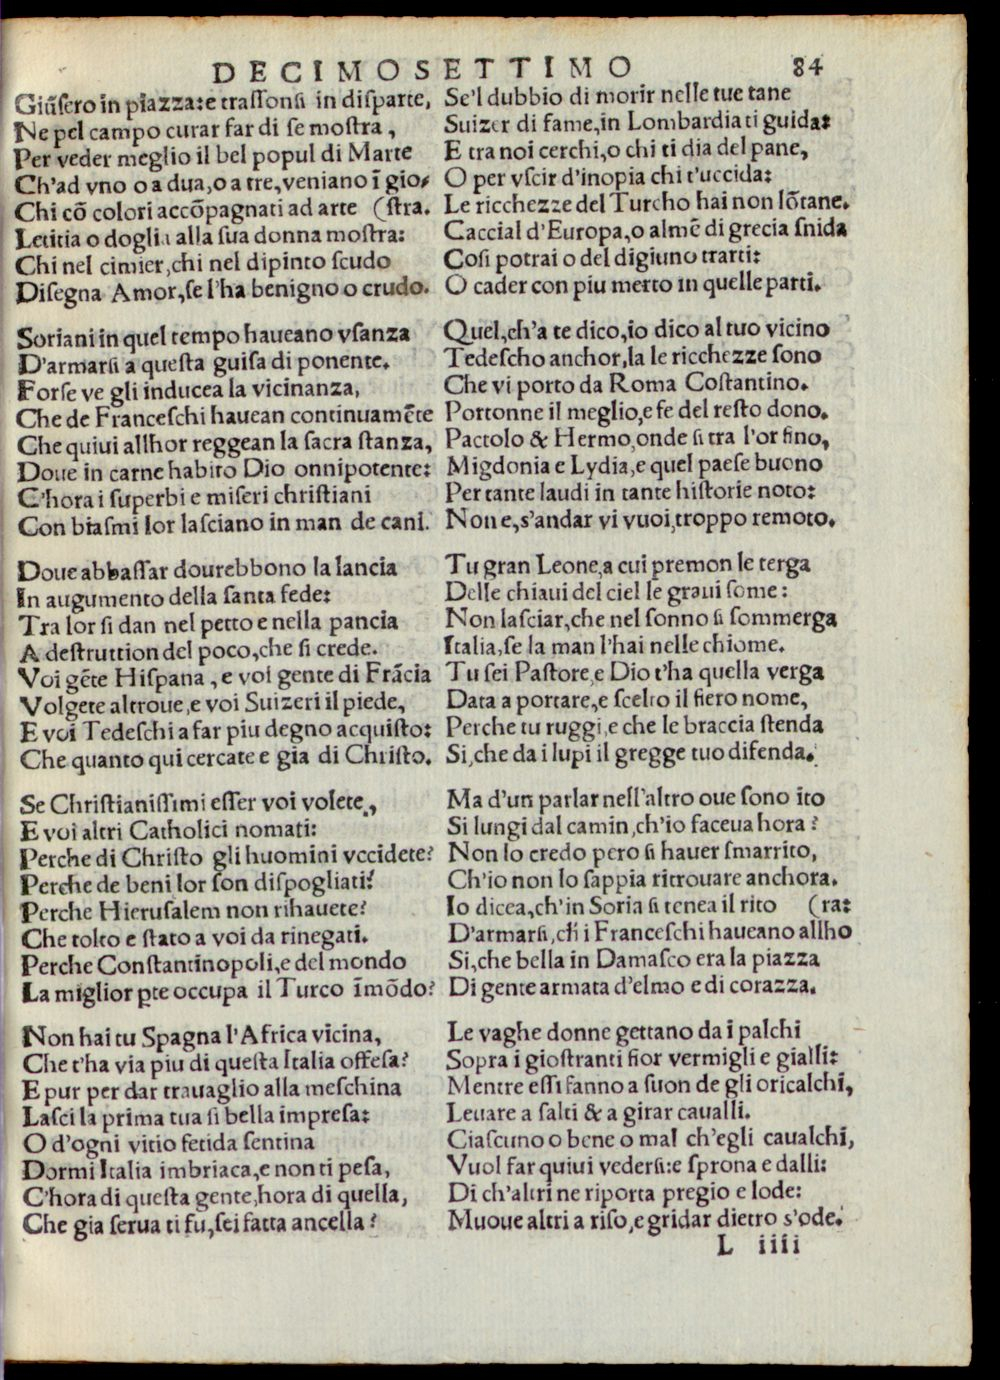 DECIMOSETTIMO 84
Giūſero in piazza:e traſſonſi in diſparte,
Ne pel campo curar far di ſe moſtra,
Per veder meglio il bel popul di Marte
Ch'ad vno o a dua,o a tre,veniano ī gio-
Chi cō colori accōpagnati ad arte (ſtra.
Letitia o doglia alla ſua donna moſtra:
Chi nel cimier,chi nel dipinto ſcudo
Diſegna Amor,ſe l'ha benigno o crudo.
Soriani in quel tempo haueano vſanza
D'armarſi a queſta guiſa di ponente.
Forſe ve gli inducea la vicinanza,
Che de Franceſchi hauean continuamēte
Che quiui allhor reggean la ſacra ſtanza,
Doue in carne habito Dio onnipotente:
C'hora i ſuperbi e miſeri chriſtiani
Con biaſmi lor laſciano in man de cani.
Doue abbaſſar dourebbono la lancia
In augumento della ſanta fede:
Tra lor ſi dan nel petto e nella pancia
A deſtruttion del poco,che ſi crede.
Voi gēte Hiſpana, e voi gente di Frācia
Volgete altroue,e voi Suizeri il piede,
E voi Tedeſchi a far piu degno acquiſto:
Che quanto qui cercate e gia di Chriſto.
Se Chriſtianiſſimi eſſer voi volete,
E voi altri Catholici nomati:
Perche di Chriſto gli huomini vccidete?
Perche de beni lor ſon diſpogliati?
Perche Hieruſalem non rihauete?
Che tolto e ſtato a voi da rinegati.
Perche Conſtantinopoli,e del mondo
La miglior ꝑte occupa il Turco īmōdo?
Non hai tu Spagna l'Africa vicina,
Che t'ha via piu di queſta Italia offeſa?
E pur per dar trauaglio alla meſchina
Laſci la prima tua ſi bella impreſa:
O d'ogni vitio fetida ſentina
Dormi Italia imbriaca,e non ti peſa,
C'hora di queſta gente,hora di quella,
Che gia ſerua ti fu,ſei fatta ancella?
Se'l dubbio di morir nelle tue tane
Suizer di fame,in Lombardia ti guida:
E tra noi cerchi,o chi ti dia del pane,
O per vſcir d'inopia chi t'uccida:
Le ricchezze del Turcho hai non lōtane.
Caccial d'Europa,o almē di grecia ſnida
Coſi potrai o del digiuno trarti:
O cader con piu merto in quelle parti.
Quel,ch'a te dico,io dico al tuo vicino
Tedeſcho anchor,la le ricchezze ſono
Che vi porto da Roma Coſtantino.
Portonne il meglio,e fe del reſto dono.
Pactolo & Hermo,onde ſi tra l'or fino,
Migdonia e Lydia,e quel paeſe buono
Per tante laudi in tante hiſtorie noto:
Non e,s'andar vi vuoi,troppo remoto.
Tu gran Leone,a cui premon le terga
Delle chiaui del ciel le graui ſome:
Non laſciar,che nel ſonno ſi ſommerga
Italia,ſe la man l'hai nelle chiome.
Tu ſei Paſtore,e Dio t'ha quella verga
Data a portare,e ſcelto il fiero nome,
Perche tu ruggi,e che le braccia ſtenda
Si,che da i lupi il gregge tuo difenda.
Ma d'un parlar nell'altro oue ſono ito
Si lungi dal camin,ch'io faceua hora?
Non lo credo pero ſi hauer ſmarrito,
Ch'io non lo ſappia ritrouare anchora.
Io dicea,ch'in Soria ſi tenea il rito (ra:
D'armarſi,ch̄ i Franceſchi haueano allho
Si,che bella in Damaſco era la piazza
Di gente armata d'elmo e di corazza.
Le vaghe donne gettano da i palchi
Sopra i gioſtranti fior vermigli e gialli:
Mentre eſſi fanno a ſuon de gli oricalchi,
Leuare a ſalti & a girar caualli.
Ciaſcuno o bene o mal ch'egli caualchi,
Vuol far quiui vederſi:e ſprona e dalli:
Di ch'altri ne riporta pregio e lode:
Muoue altri a riſo,e gridar dietro s'ode.
L iiii